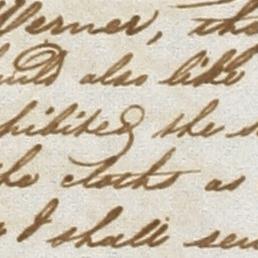 Werner, tho
would also like
hibited the s
the cloths as
I shall sen